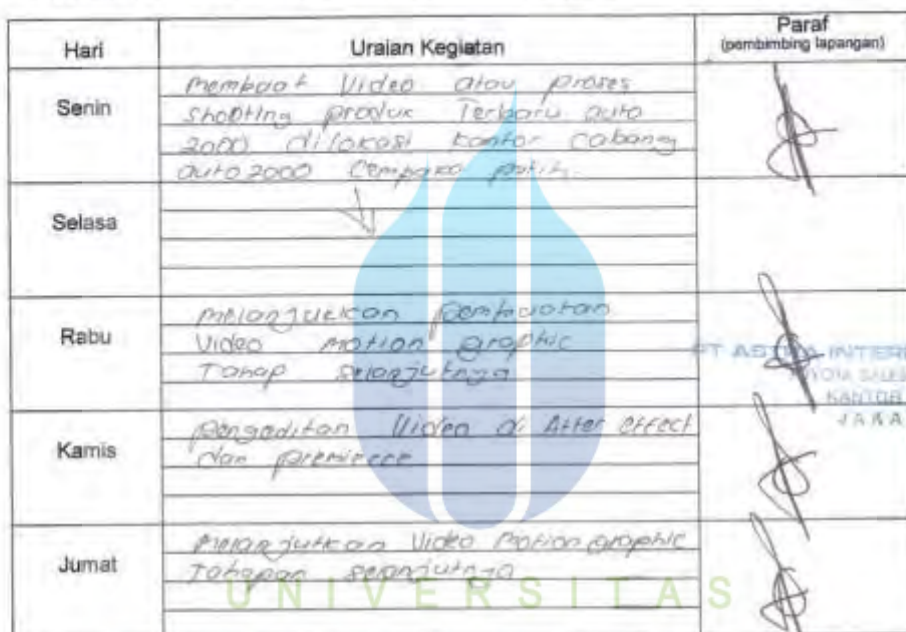 Hari Uraian Kegiatan Paraf
(pembimbing lapangan)
Senin
membuat Video atau proses
shooting produk Terbaru auto
2000 dilokasi kantor cabang
auto 2000 Cempaka putih
Selasa
Rabu
melanjutkan pembuatan
Video motion graphic
Tahap selanjutnya
PT ASTRA INTER
TOYOTA SALES
KANTOR
JAKA
Kamis
pengeditan Video di After effect
dan premiere
Jumat
melanjutkan Video motion graphic
Tahapan selanjutnya
UNIVERSITAS